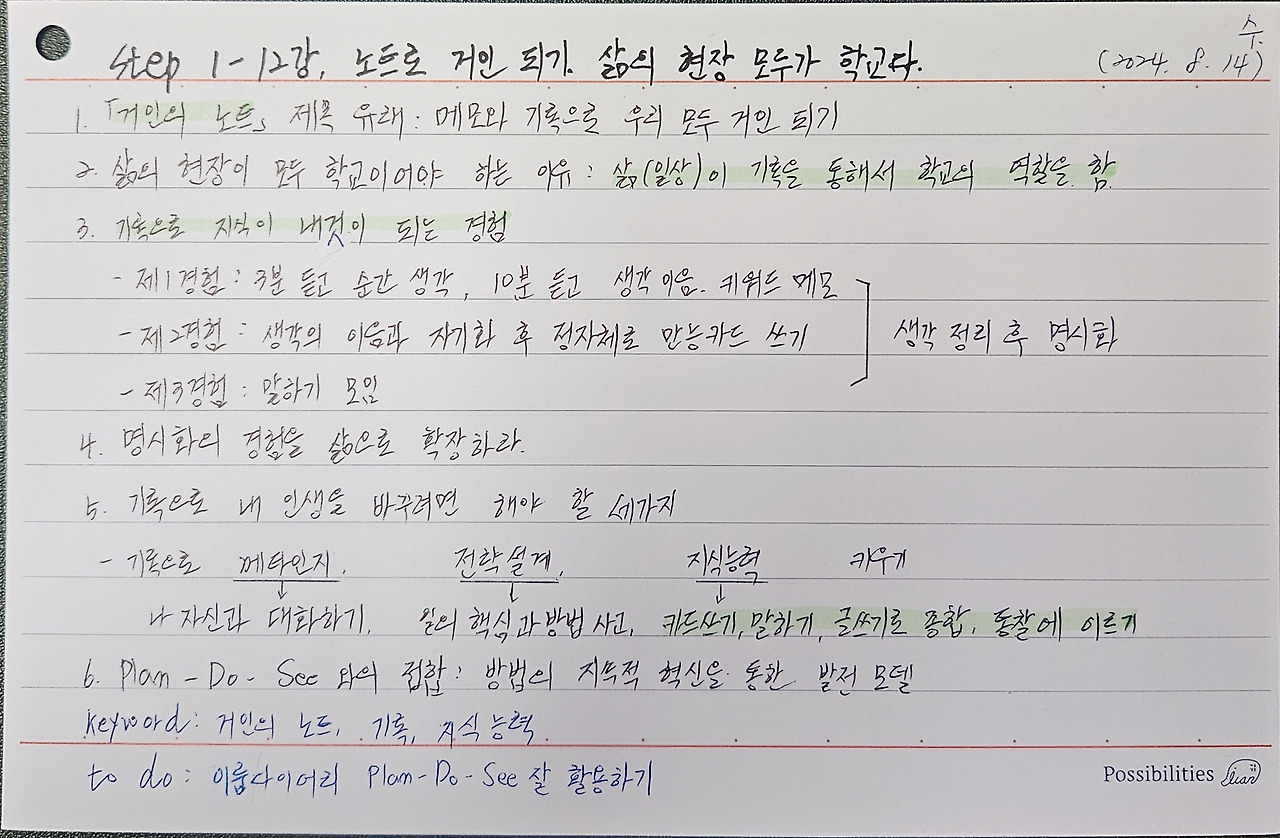 수.
Step 1-12강. 노트로 거인 되기. 삶의 현장 모두가 학교다. (2024. 8. 14)
1. 「거인의 노트」 제목 유래 : 메모와 기록으로 우리 모두 거인 되기
2. 삶의 현장이 모두 학교이어야 하는 이유 : 삶(일상)이 기록을 통해서 학교의 역할을 함
3. 기록으로 지식이 내것이 되는 경험
- 제1경험 : 3분 듣고 순간 생각, 10분 듣고 생각 이음. 키워드 메모
- 제2경험 : 생각의 이음과 자기화 후 정자체로 만능카드 쓰기 생각 정리 후 명시화
- 제3경험 : 말하기 모임
4. 명시화의 경험을 삶으로 확장하라.
5. 기록으로 내 인생을 바꾸려면 해야 할 세가지
- 기록으로 메타인지, 전략설계, 지식능력 키우기
나 자신과 대화하기, 일의 핵심과 방법 사고, 카드쓰기, 말하기, 글쓰기로 종합, 통찰에 이르기
6. Plan-Do-See와의 접합 : 방법의 지속적 혁신을 통한 발전 모델
keyword : 거인의 노트, 기록, 지식 능력
to do : 이룸다이어리 Plan-Do-See 잘 활용하기
Possibilities